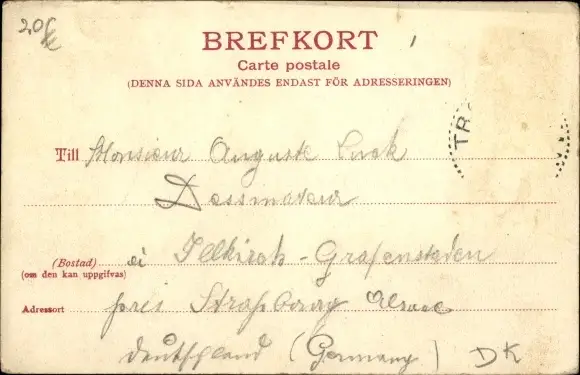 20€
BREFKORT
Carte postale
(DENNA SIDA ANVÄNDES ENDAST FÖR ADRESSERINGEN)
TR
Till Monsieur Auguste
Dessinateur
(Bostad) à Illkirch-Grafenstaden
(om den kan uppgifvas)
Adressort près Straßbourg Alsace
Deutschland (Germany) DK